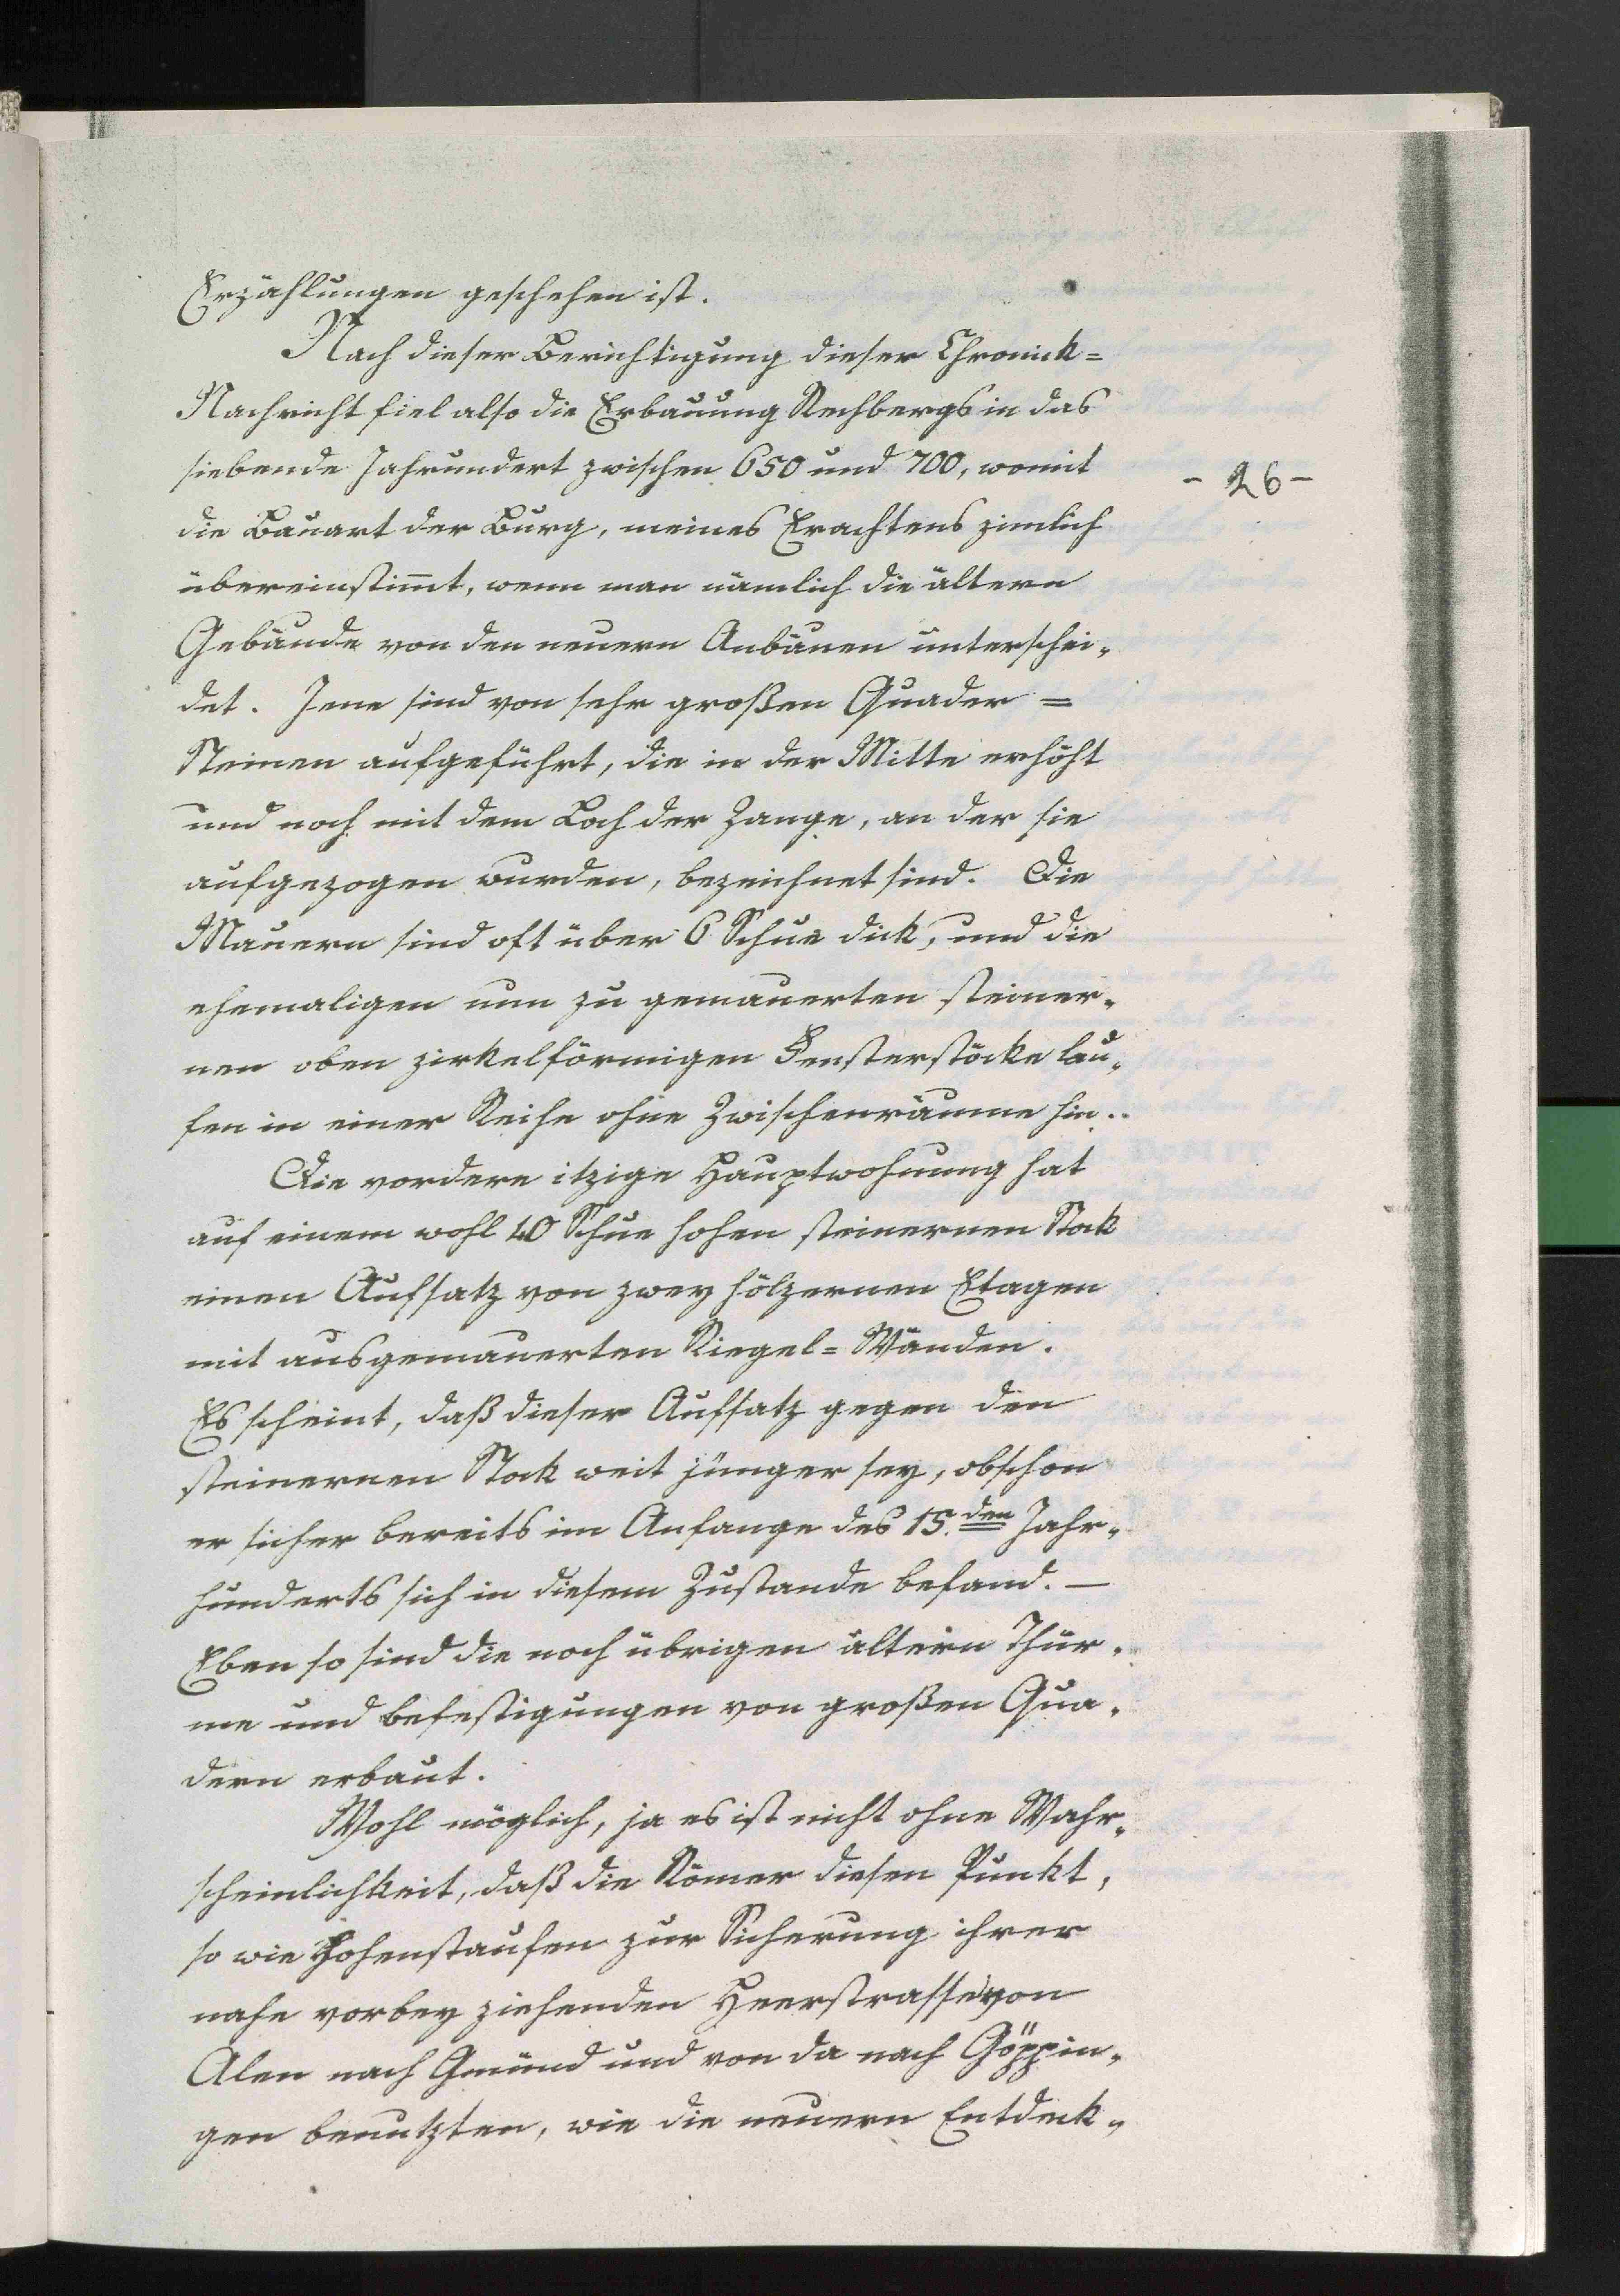 Erzählungen geschehen ist.
Nach dieser Berichtigung dieser Chronick=
Nachricht fiel also die Erbauung Rechbergs in das
siebende Jahrundert zwischen 650 und 700, womit
- 26 -
die Bauart der Burg, meines Erachtens zimlich
übereinstim̅t, wenn man nämlich die ältern
Gebäude von den neuern Anbäuen unterschei„
det. Jene sind von sehr großen Quader =
Steinen aufgeführt, die in der Mitte erhöht
und noch mit dem Loch der Zange, an der sie
aufgezogen wurden, bezeichnet sind. Die
Mauern sind oft über 6 Schue dick, und die
ehemaligen nun zu gemauerten steiner„
nen oben zirkelförmigen Fensterstöcke lau„
fen in einer Reihe ohne Zwischenräume hin..
Die vordere itzige Hauptwohnung hat
auf einem wohl 40 Schue hohen steinernen Stok
einen Aufsatz von zwey hölzernen Etagen
mit ausgemauerten Riegel=Wänden.
Es scheint, daß dieser Aufsatz gegen den
steinernen Stok weit jünger sey, obschon
er sicher bereits im Anfange des 15.den Jahr„
hunderts sich in diesem Zustande befand. —
Eben so sind die noch übrigen ältern Thür„
me und befestigungen von großen Qua„
dern erbaut.
Wohl möglich, ja es ist nicht ohne Wahr„
scheinlichkeit, daß die Römer diesen Punkt,
so wie Hohenstaufen zur Sicherung ihrer
nahe vorbey ziehenden Heerstrasse von
Alen nach Gmünd und von da nach Göppin„
gen benutzten, wie die neuern Entdeck„